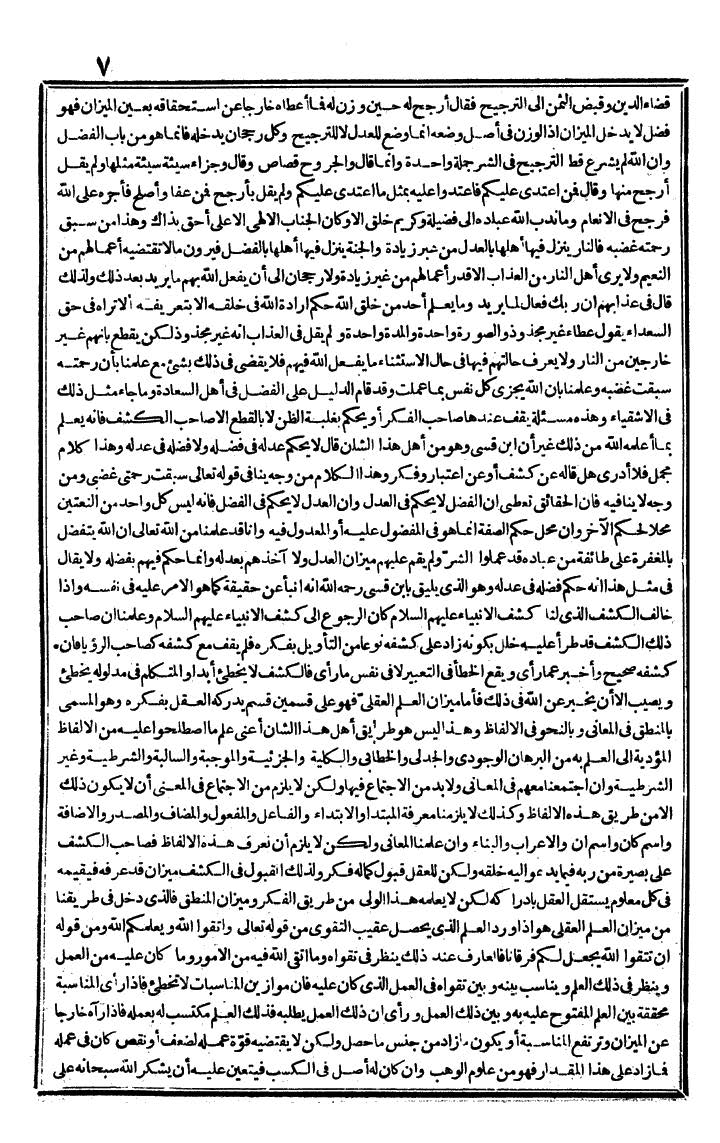 ٧
قضاء الدين وقبض الثمن الى الترجيح فقال أرجح له حسين وزن له فما أعطاه خارجا عن استحقاقه بعين الميزان فهو
فضل لا يدخل الميزان اذ الوزن فى أصل وضعه انما وضع للعدل لا للترجيح وكل رجحان يدخله فانما هو من باب الفضل
وان الله لم يشرع قط الترجيح فى الشر جملة واحدة وانما قال والجروح قصاص وقال وجزاء سيئة سيئة مثلها ولم يقل
أرجح منها وقال فمن اعتدى عليكم فاعتدوا عليه بمثل ما اعتدى عليكم ولم يقل بأرجح فمن عفا وأصلح فأجره على الله
فرجح فى الانعام وما ندب الله عباده الى فضيلة وكريم خلق الا وكان الجناب الالهى الاعلى أحق بذاك وهذا من سبق
رحمته غضبه فالنار ينزل فيها أهلها بالعدل من غير زيادة والجنة ينزل فيها أهلها بالفضل فيرون ما لا تقتضيه أعمالهم من
النعيم ولا يرى أهل النار من العذاب الا قدر أعمالهم من غير زيادة ولا رجحان الى أن يفعل الله بهم ما يريد بعد ذلك ولذلك
قال فى عذابهم ان ربك فعال لما يريد وما يعلم أحد من خلق الله حكم ارادة الله فى خلقه الا بتعريفه ألا تراه فى حق
السعداء يقول عطاء غير مجذوذ والصورة واحدة والمدة واحدة ولم يقل فى العذاب انه غير مجذوذ لكن يقطع بانهم غير
خارجين من النار ولا يعرف حالتهم فيها فى حال الاستثناء ما يفعل الله فيهم فلا يقضى فى ذلك بشئ مع علمنا بأن رحمته
سبقت غضبه وعلمنا بان الله يجزى كل نفس بما عملت وقد قام الدليل على الفضل فى أهل السعادة وما جاء مثل ذلك
فى الاشقياء وهذه مسئلة يقف عندها صاحب الفكر أو يحكم بغلبة الظن لا بالقطع الا صاحب الكشف فانه يعلم
بما أعلمه الله من ذلك غير أن ابن قسى وهو من أهل هذا الشان قال لا يحكم عدله فى فضله ولا فضله فى عدله وهذا كلام
مجمل فلا أدرى هل قاله عن كشف أو عن اعتبار وفكر وهذا الكلام من وجه ينافى قوله تعالى سبقت رحمتى غضبى ومن
وجه لا ينافيه فان الحقائق تعطى ان الفضل لا يحكم فى العدل وان العدل لا يحكم فى الفضل فانه ليس كل واحد من النعتين
محلا لحكم الآخر وان محل حكم الصفة انما هو فى المفضول عليه أو المعدول فيه وانا قد علمنا من الله تعالى ان الله يتفضل
بالمغفرة على طائفة من عباده قد عملوا الشر ولم يقم عليهم ميزان العدل ولا آخذهم بعدله وانما حكم فيهم بفضله ولا يقال
فى مثل هذا انه حكم فضله فى عدله وهو الذى يليق بابن قسى رحمه الله انه انبأ عن حقيقة كما هو الامر عليه فى نفسه واذا
خالف الكشف الذى لنا كشف الانبياء عليهم السلام كان الرجوع الى كشف الانبياء عليهم السلام وعلمنا ان صاحب
ذلك الكشف قد طرأ عليه خلل بكونه زاد على كشفه نوعا من التأويل بفكره فلم يقف مع كشفه كصاحب الرؤيا فان
كشفه صحيح وأخبر عما رأى ويقع الخطأ فى التعبير لا فى نفس ما رأى فالكشف لا يخطئ أبدا والمتكلم فى مدلوله يخطئ
ويصيب الا أن يخبر عن الله فى ذلك فأما ميزان العلم العقلى فهو على قسمين قسم يدركه العقل بفكره وهو المسمى
بالمنطق فى المعانى وبالنحو فى الالفاظ وهذا ليس هو طريق أهل هذا الشان أعنى علم ما اصطلحوا عليه من الالفاظ
المؤدية الى العلم به من البرهان الوجودى والجدلى والخطابى والكلية والجزئية والموجبة والسالبة والشرطية وغير
الشرطية وان اجتمعنا معهم فى المعانى ولابد من الاجتماع فيها ولكن لا يلزم من الاجتماع فى المعنى أن لا يكون ذلك
الا من طريق هذه الالفاظ وكذلك لا يلزمنا معرفة المبتدا والابتداء والفاعل والمفعول والمضاف والمصدر والاضافة
واسم كان واسم ان والاعراب والبناء وان علمنا المعانى ولكن لا يلزم أن نعرف هذه الالفاظ فصاحب الكشف
على بصيرة من ربه فيما يدعو اليه خلقه ولكن للعقل قبول كماله فكر ولذلك القبول فى الكشف ميزان قد عرفه فيقيمه
فى كل معلوم يستقل العقل بادراكه لكن لا يعلمه هذا الولى من طريق الفكر وميزان المنطق فالذى دخل فى طريقنا
من ميزان العلم العقلى هو اذا ورد العلم الذى يحصل عقيب التقوى من قوله تعالى واتقوا الله ويعلمكم الله ومن قوله
ان تتقوا الله يجعل لكم فرقانا فالعارف عند ذلك ينظر فى تقواه وما اتقى الله فيه من الامور وما كان عليه من العمل
وينظر فى ذلك العلم ويناسب بينه وبين تقواه فى العمل الذى كان عليه فان موازين المناسبات لا تخطئ فاذا رأى المناسبة
محققة بين العلم المفتوح عليه به وبين ذلك العمل ورأى ان ذلك العمل يطلبه فذلك العلم مكتسب له بعمله فاذا رآه خارجا
عن الميزان وترتفع المناسبة أو يكون ما زاد من جنس ما حصل ولكن لا يقتضيه قوة عمله لضعف أو نقص كان فى عمله
فما زاد على هذا المقدار فهو من علوم الوهب وان كان له أصل فى الكسب فيتعين عليه أن يشكر الله سبحانه على